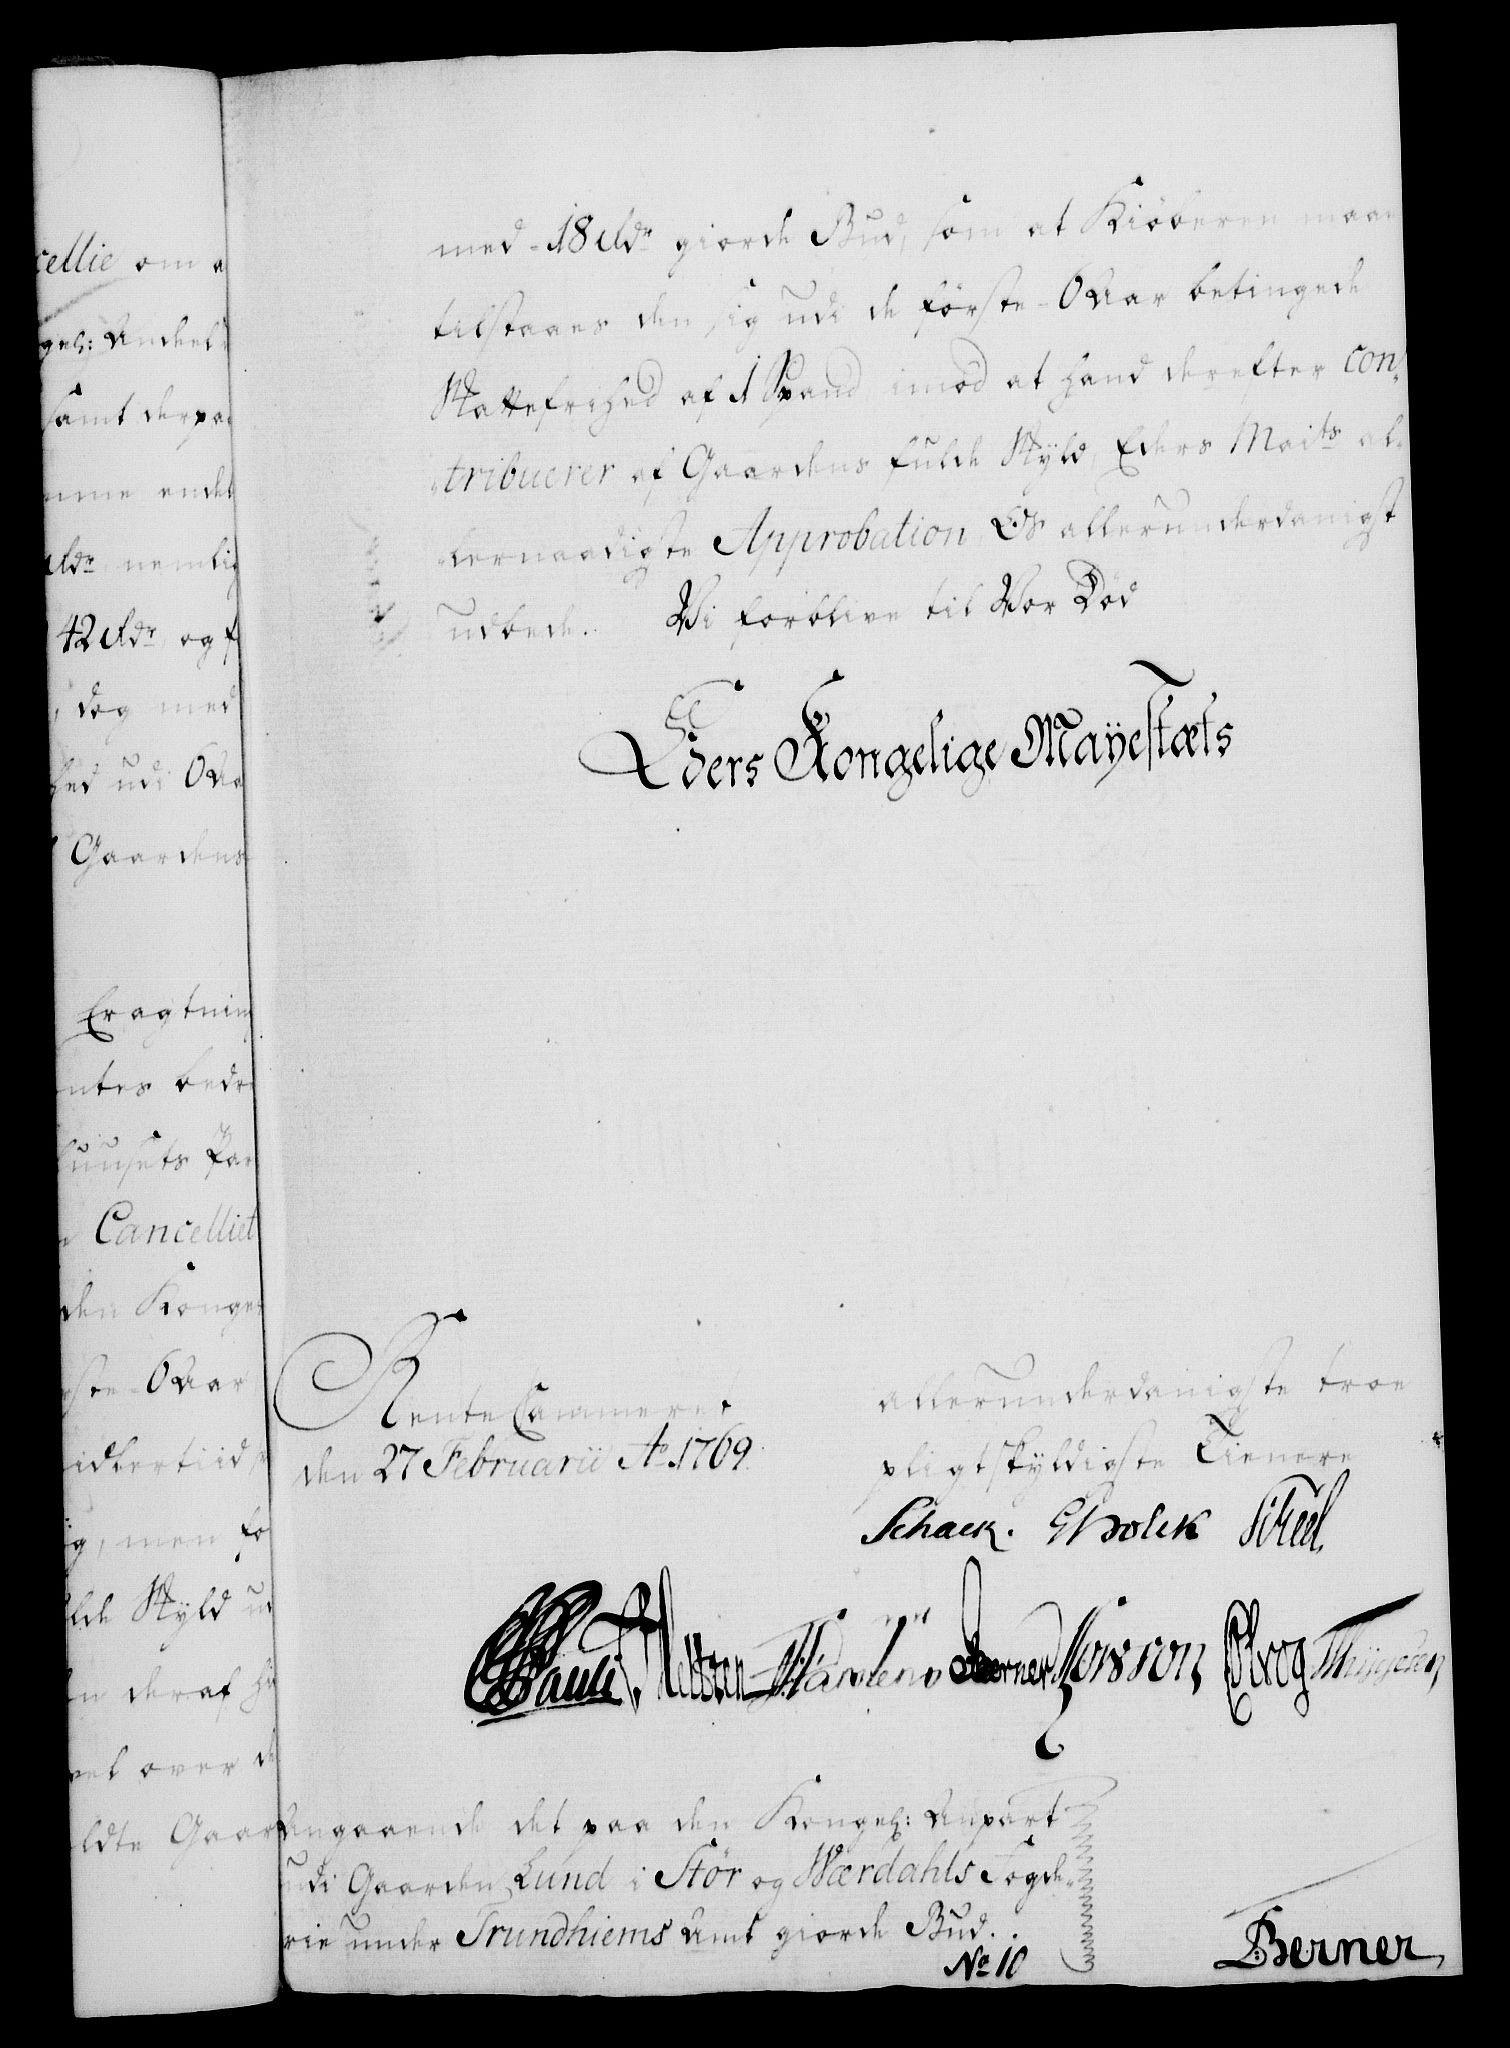 cellie om a
gel: Andeel
samt derpaa
mme endel
Rdr nemlig
42 Rdr, og f
, dog med
hed udi 6 Aa
Gaardens
Eragtning
ntes bedr
huusets Par
Cancelliet
den Konge
rste 6 Aar
idlertiid
ig, men fo
lde Skyld ud
n deraf h
vel over de
ldte Gaar
med 18 Rdr giorde Bud, som at Kiöberen maae
tilstaaes den sig udi de förste 6 Aar betingede
Skattefrihed af 1 Spand imod at hand derefter con-
-tribuerer af Gaardens fulde Skyld, Eders Maits al-
-lernaadigste Approbation Os allerunderdanigst
udbede. Vi forblive til Vor Död
Eders Kongelige Mayestæts
Rente Cammeret
den 27 Februarii Ao 1769.
allerunderdanigste troe
pligtskyldigste Tienere
Schack. GHolck Scheel
Pauli. Berner
Angaaende det paa den Kongel: Anpart
udi Gaarden Lund i Stör og Værdahls Fogde-
rie under Trundhiems Amt giorde Bud.
No 10
Berner